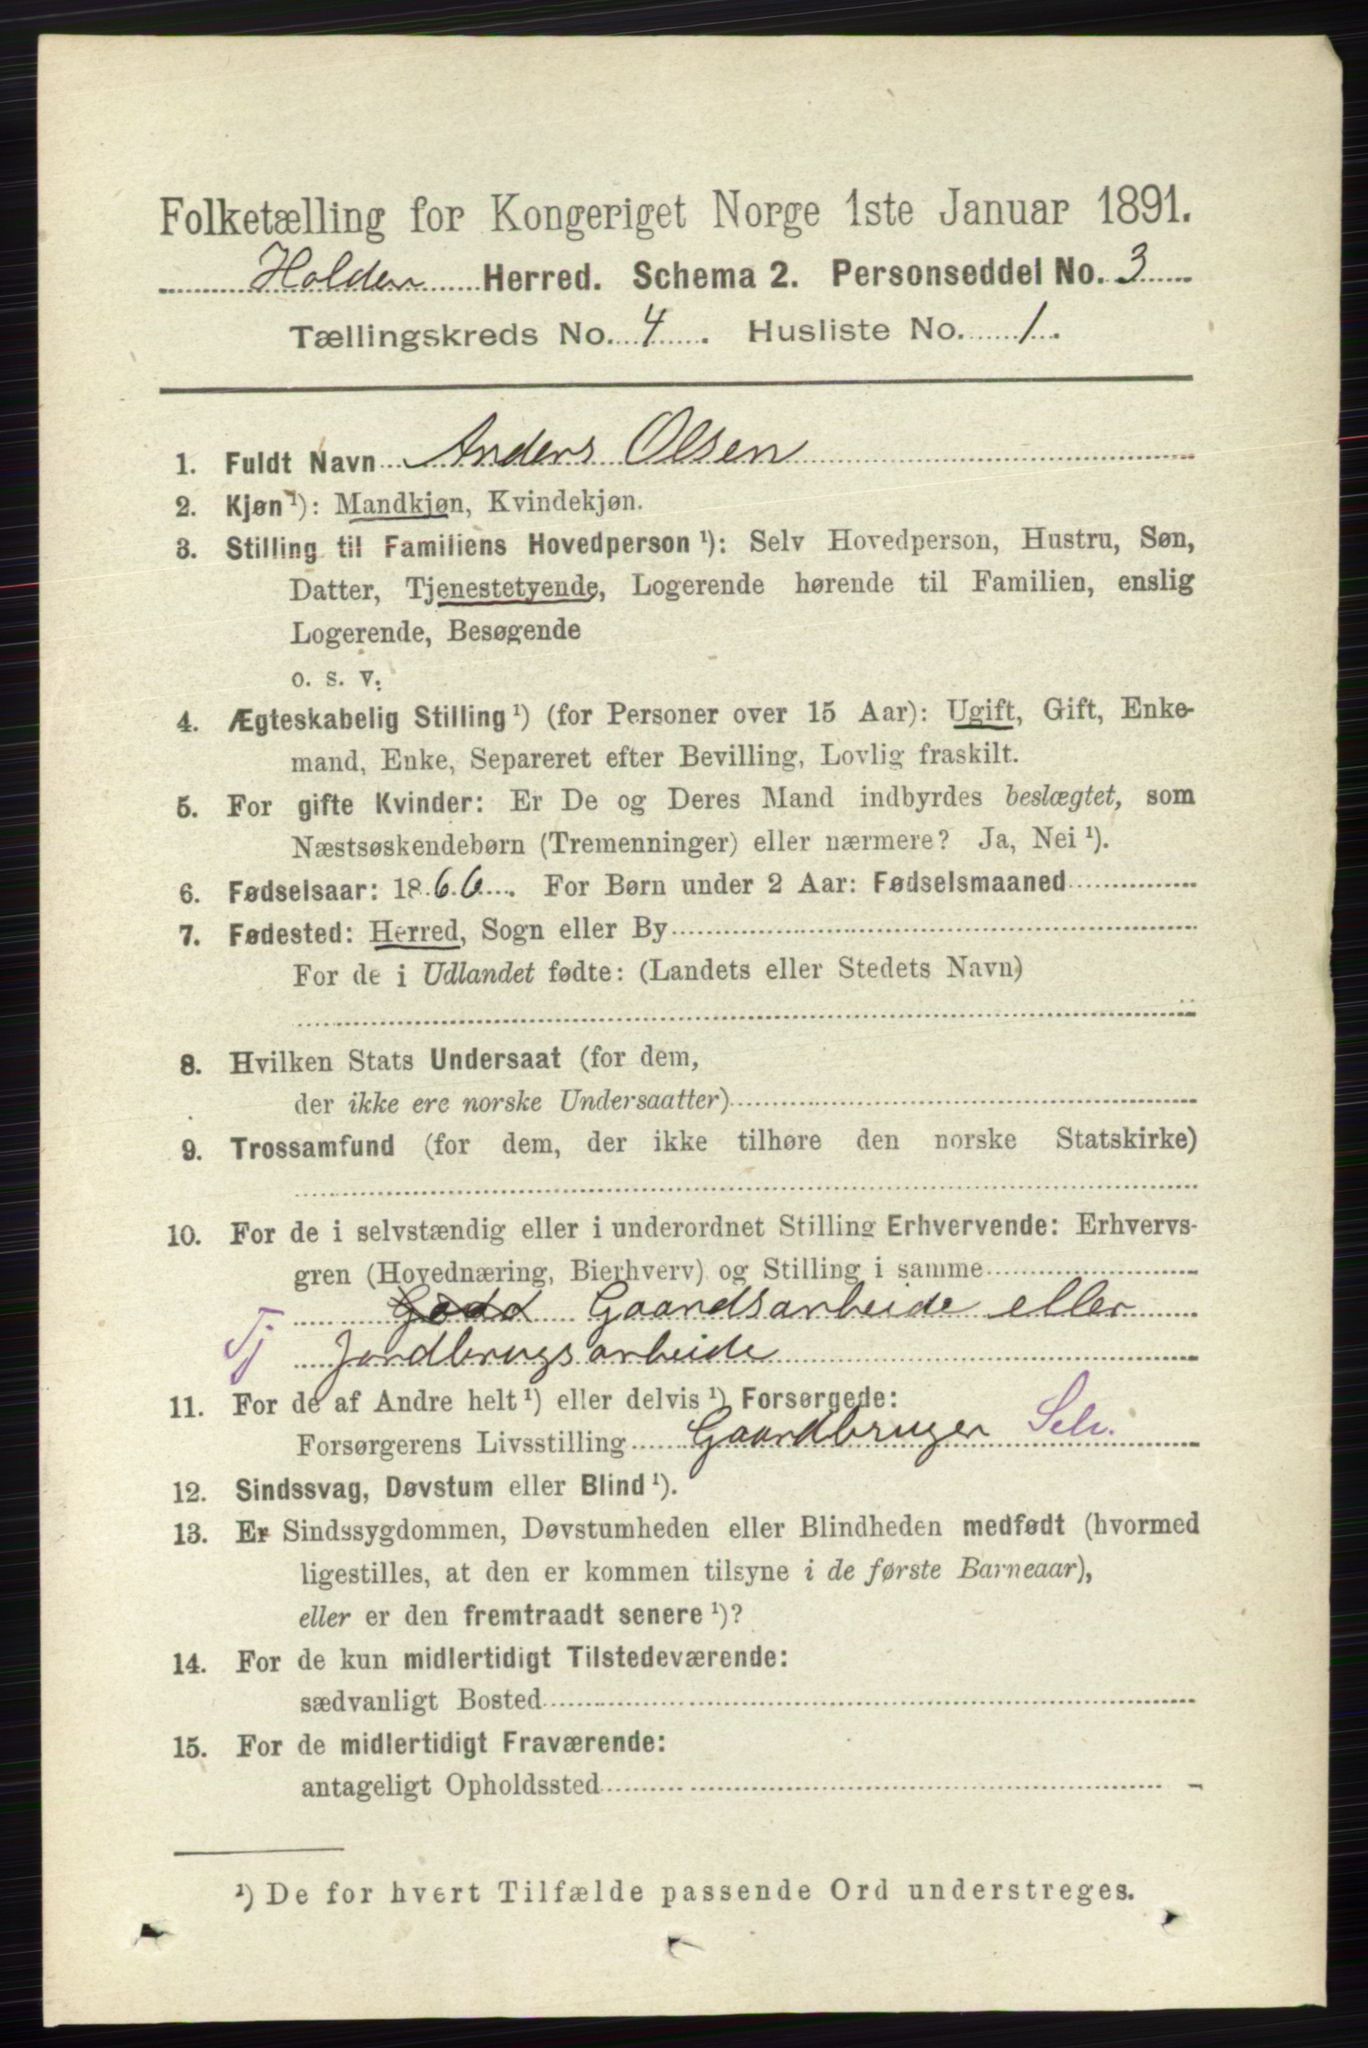 Folketælling for Kongeriget Norge 1ste Januar 1891.
Holden Herred. Schema 2. Personseddel No. 3
Tællingskreds No. 4. Husliste No. 1.
1. Fuldt Navn Anders Olsen
2. Kjøn¹): Mandkjøn, Kvindekjøn.
3. Stilling til Familiens Hovedperson¹): Selv Hovedperson, Hustru, Søn,
Datter, Tjenestetyende, Logerende hørende til Familien, enslig
Logerende, Besøgende
o. s. v.
4. Ægteskabelig Stilling¹) (for Personer over 15 Aar): Ugift, Gift, Enke-
mand, Enke, Separeret efter Bevilling, Lovlig fraskilt.
5. For gifte Kvinder: Er De og Deres Mand indbyrdes beslægtet, som
Næstsøskendebørn (Tremenninger) eller nærmere? Ja, Nei¹).
6. Fødselsaar: 1866. For Børn under 2 Aar: Fødselsmaaned
7. Fødested: Herred, Sogn eller By
For de i Udlandet fødte: (Landets eller Stedets Navn)
8. Hvilken Stats Undersaat (for dem,
der ikke ere norske Undersaatter)
9. Trossamfund (for dem, der ikke tilhøre den norske Statskirke)
10. For de i selvstændig eller i underordnet Stilling Erhvervende: Erhvervs-
gren (Hovednæring, Bierhverv) og Stilling i samme
Gaardsarbeide eller
Tj Jordbrugsarbeide
11. For de af Andre helt¹) eller delvis¹) Forsørgede:
Forsørgerens Livsstilling Gaardbruger Selv.
12. Sindssvag, Døvstum eller Blind¹).
13. Er Sindssygdommen, Døvstumheden eller Blindheden medfødt (hvormed
ligestilles, at den er kommen tilsyne i de første Barneaar),
eller er den fremtraadt senere¹)?
14. For de kun midlertidigt Tilstedeværende:
sædvanligt Bosted
15. For de midlertidigt Fraværende:
antageligt Opholdssted
¹) De for hvert Tilfælde passende Ord understreges.